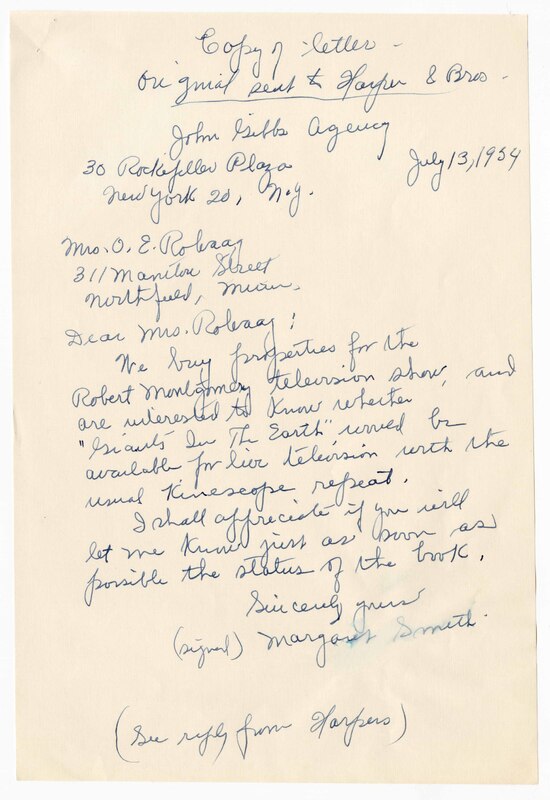 Copy of letter -
Original sent to Harper & Bros -
John Gibbs Agency
30 Rockefeller Plaza
July 13, 1954
New York 20, N.Y.
Mrs. O. E. Rolvaag
311 Manitou Street
Northfield, Minn.
Dear Mrs. Rolvaag:
We buy properties for the
Robert Montgomery television show, and
are interested to know whether
"Giants In The Earth" would be
available for live television with the
usual Kinescope repeat.
I shall appreciate if you will
let me know just as soon as
possible the status of the book.
Sincerely yours
(signed) Margaret Smith.
(See reply from Harpers)